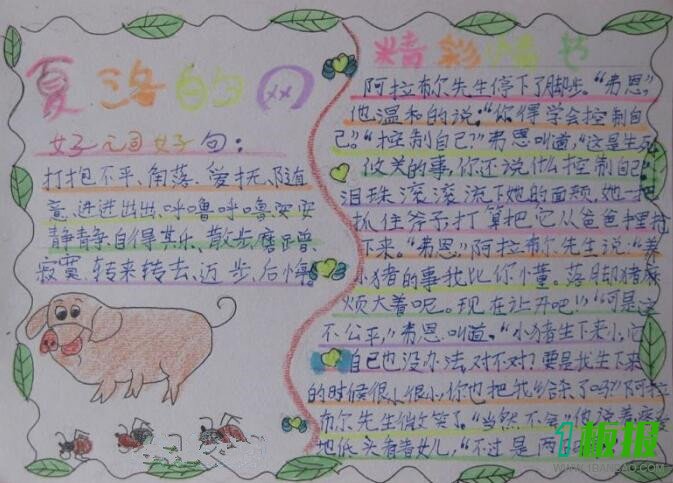 夏洛的网
好词好句：
打抱不平、角落、爱抚、随
意、进进出出、呼噜呼噜、安安
静静、自得其乐、散步、磨蹭
寂寞、转来转去、近步、后悔。
精彩情节
阿拉布尔先生停下了脚步。“弗恩，”
他温和的说：“你得学会控制自
己。”“控制自己？”弗恩叫道，“这是生死
攸关的事，你还说什么控制自己。”
泪珠滚滚流下她的面颊，她一把
抓住斧子，打算把它从爸爸手里抢
下来。“弗恩，”阿拉布尔先生说：“养
小猪的事我比你懂。落脚猪麻
烦大着呢。现在让开吧！”“可是这
不公平，”弗恩叫道。“小猪生下来小，它
自己也没办法，对不对？要是我生下来
的时候很小很小，你也把我给杀了吗？”阿拉
布尔先生微笑了。“当然不会，”他说着疼
地低头看着女儿，“不过是两
1板报
WWW.1BANBAO.COM